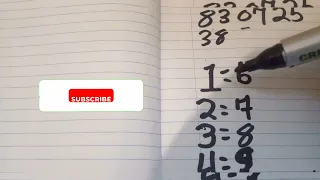 830725
38 -
1=6
2=7
3=8
4=9
SUBSCRIBE